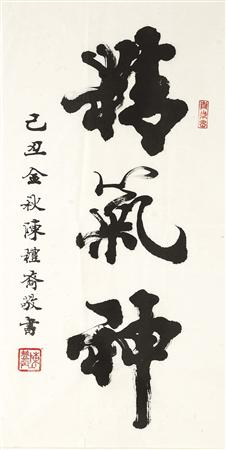 精氣神
己丑金秋陳禮喬敬書